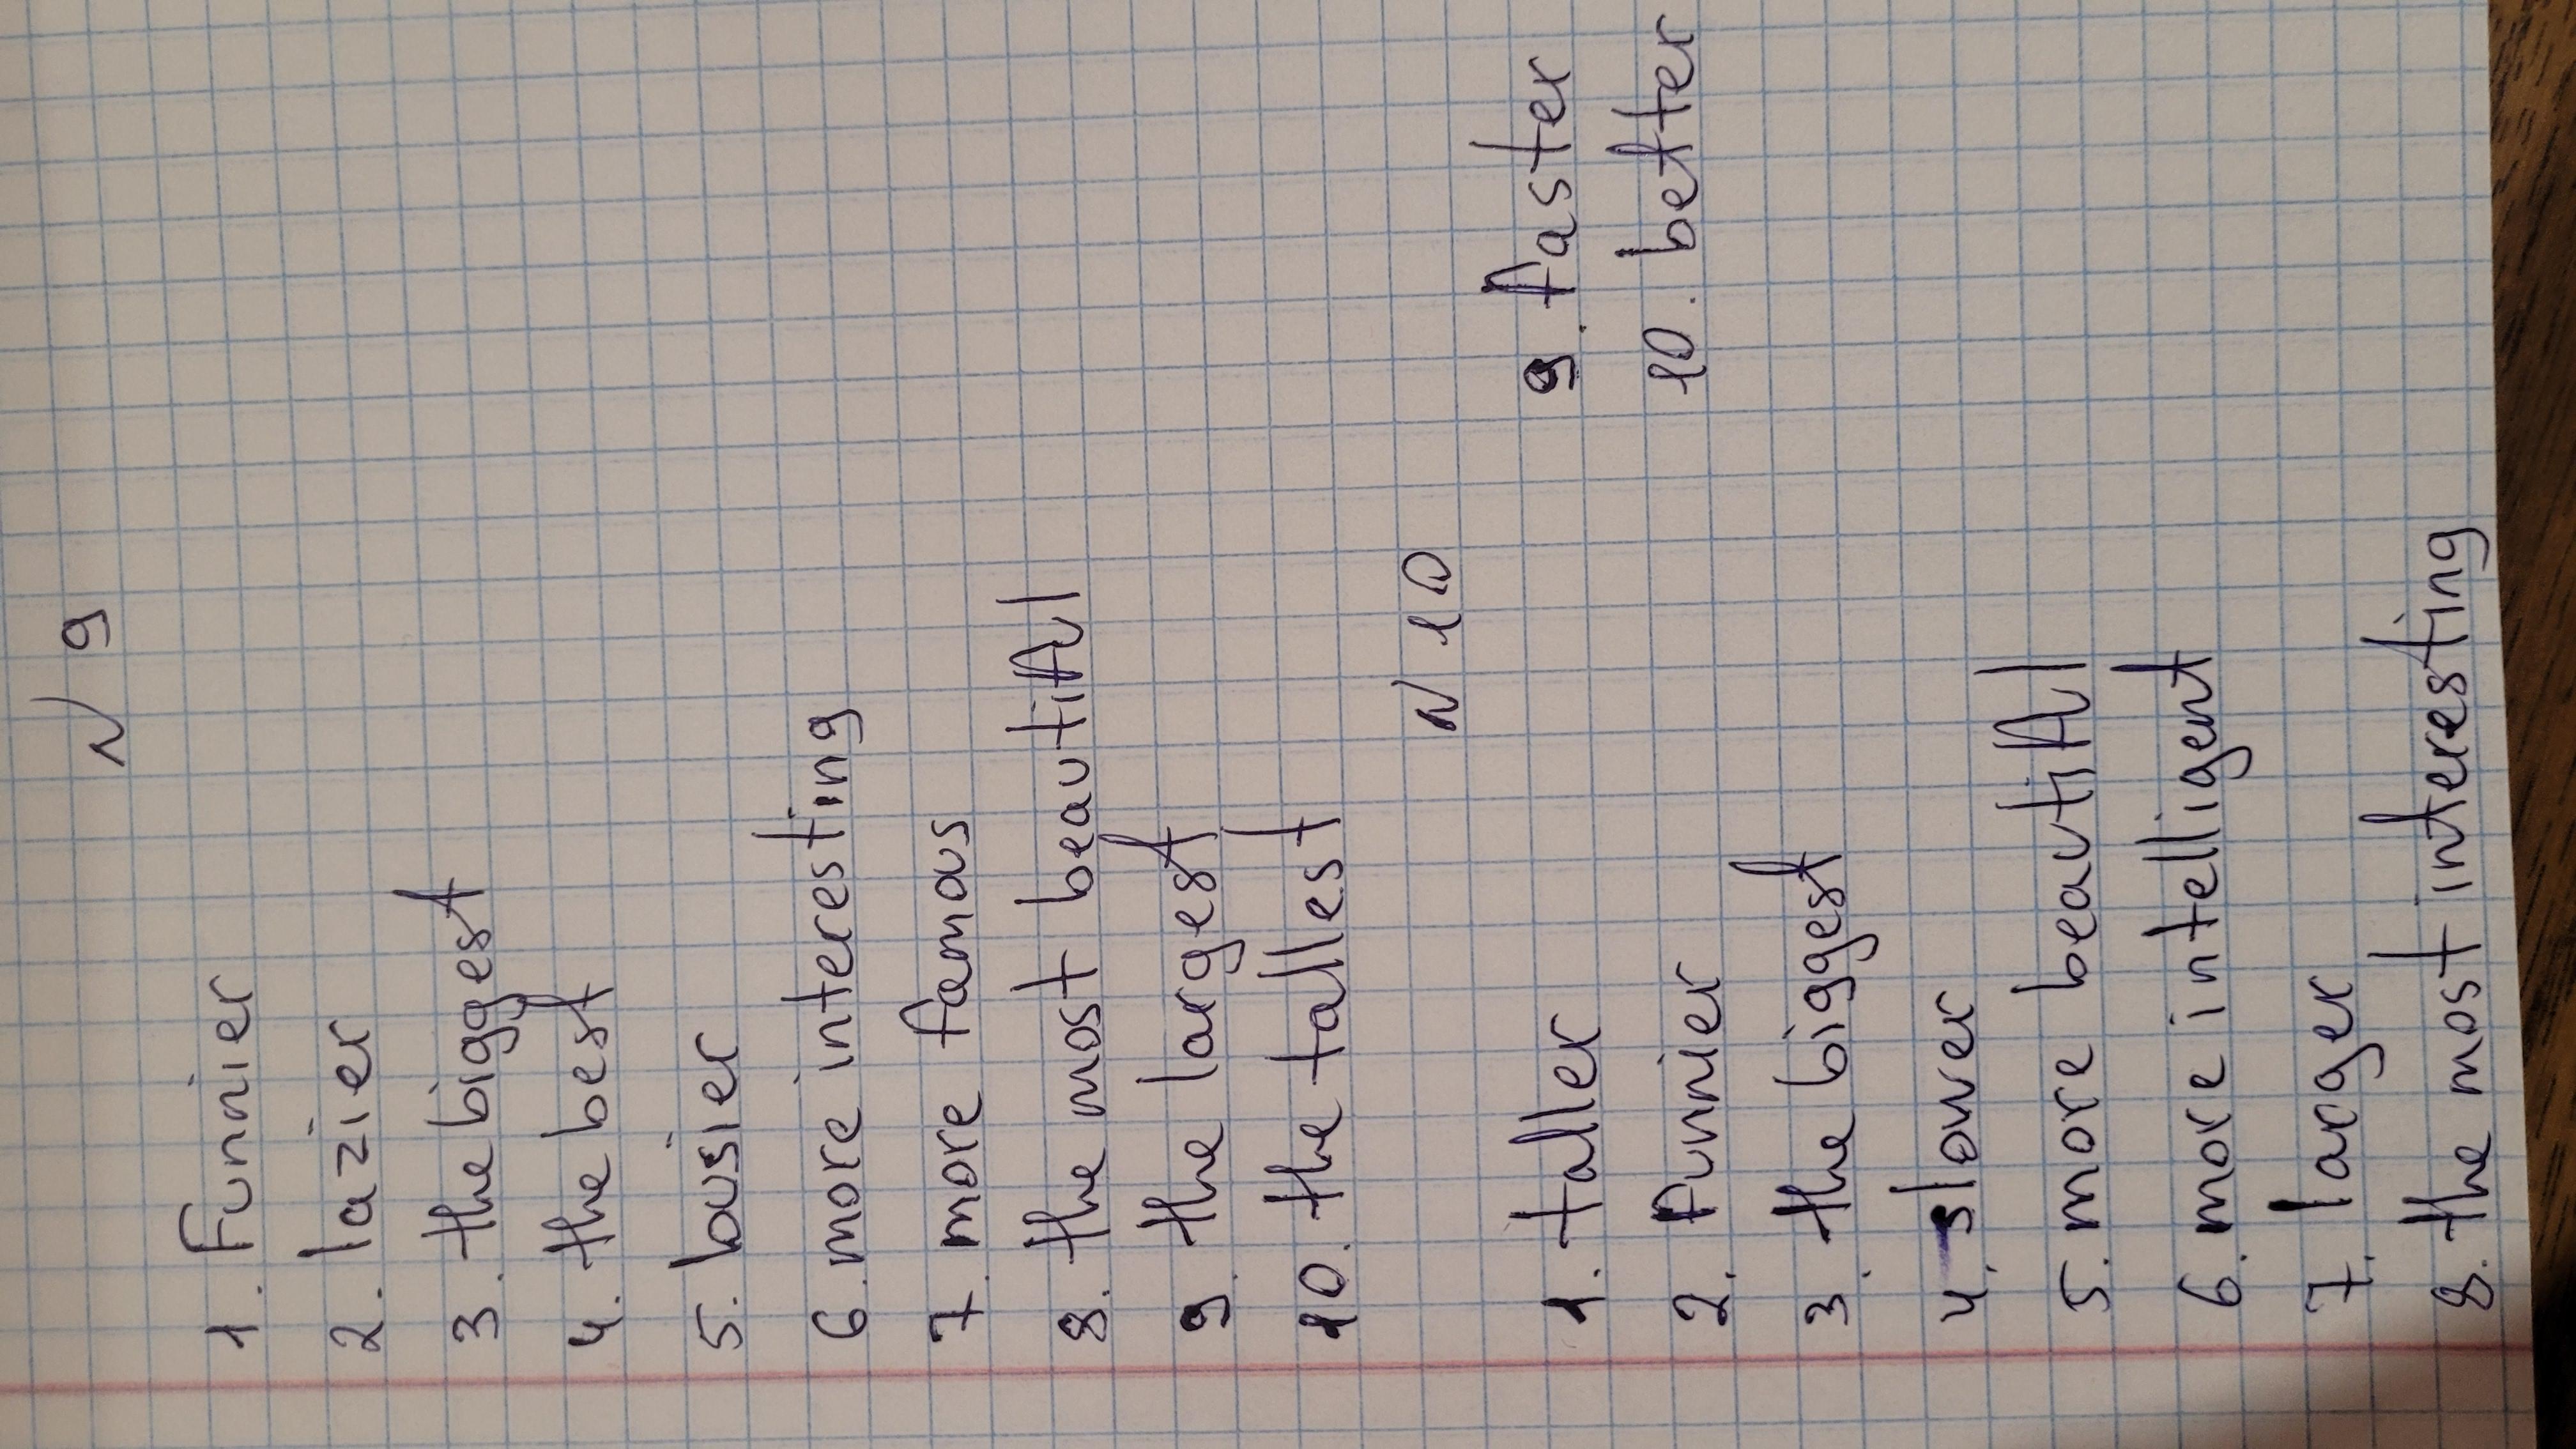 N 9
1. Funnier
2. lazier
3. the biggest
4. the best
5. busier
6. more interesting
7. more famous
8. the most beautiful
9. the largest
10. the tallest
N 10
1. taller
2. funnier
3. the biggest
4. slower
5. more beautiful
6. more intelligent
7. larger
8. the most interesting
9. faster
10. better